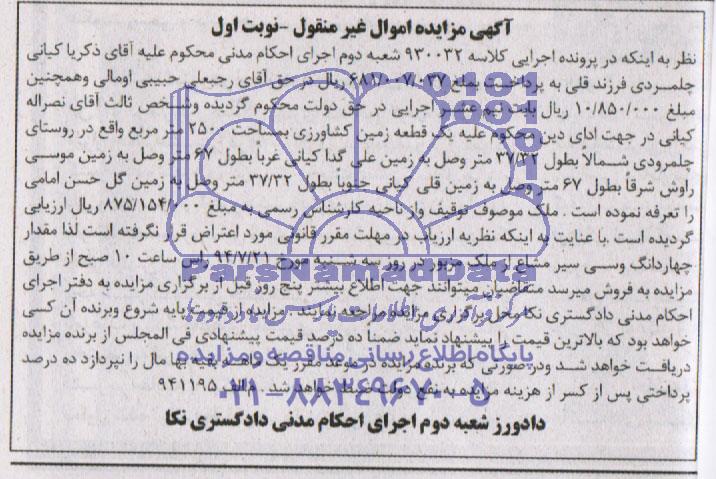 آگهی مزایده اموال غیر منقول -نوبت اول
نظر به اینکه در پرونده اجرایی کلاسه ۹۳۰۰۳۲ شعبه دوم اجرای احکام مدنی محکوم علیه آقای ذکریا کیانی
چلمردی فرزند قلی به پرداخت مبلغ ۶۸۱/۰۰۷/۰۳۷ ریال در حق آقای رجبعلی حبیبی اومالی وهمچنین
مبلغ ۱۰/۸۵۰/۰۰۰ ریال بابت نیم عشر اجرایی در حق دولت محکوم گردیده وشخص ثالث آقای نصراله
کیانی در جهت ادای دین محکوم علیه یک قطعه زمین کشاورزی بمساحت ۲۵۰۰ متر مربع واقع در روستای
چلمرودی شمالاً بطول ۳۷/۳۲ متر وصل به زمین علی گدا کیانی غرباً بطول ۶۷ متر وصل به زمین موسی
راوش شرقاً بطول ۶۷ متر وصل به زمین قلی کیانی جنوباً بطول ۳۷/۳۲ متر وصل به زمین گل حسن امامی
را تعرفه نموده است . ملک موصوف توقیف واز ناحیه کارشناس رسمی به مبلغ ۸۷۵/۱۵۴/۰۰۰ ریال ارزیابی
گردیده است .با عنایت به اینکه نظریه ارزیاب در مهلت مقرر قانونی مورد اعتراض قرار نگرفته است لذا مقدار
چهاردانگ وسی سیر مشاع از ملک مزبور در روز سه شنبه مورخ ۹۴/۷/۲۱ راس ساعت ۱۰ صبح از طریق
مزایده به فروش میرسد متقاضیان میتوانند جهت اطلاع بیشتر پنج روز قبل از برگزاری مزایده به دفتر اجرای
احکام مدنی دادگستری نکا محل برگزاری مزایده مراجعه نمایند . مزایده از قیمت پایه شروع وبرنده آن کسی
خواهد بود که بالاترین قیمت را پیشنهاد نماید ضمنا ده درصد قیمت پیشنهادی فی المجلس از برنده مزایده
دریافت خواهد شد ودرصورتی که برنده مزایده در موعد مقرر یک ماهه بقیه بها مال را نپردازد ده درصد
پرداختی پس از کسر از هزینه مزایده به نفع دولت ضبط خواهد شد . م/الف ۹۴۱۱۹۵
دادورز شعبه دوم اجرای احکام مدنی دادگستری نکا
ParsNamadData
پایگاه اطلاع رسانی مناقصه و مزایده
۰۲۱-۸۸۳۴۹۶۷۰-۵